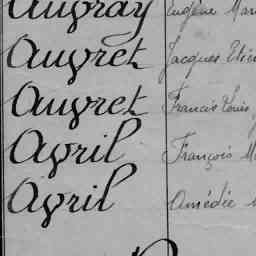 Auvray Eugène Mar
Auvret Jacques Etie
Auvret Francis Louis
Avril François M
Avril Amédée